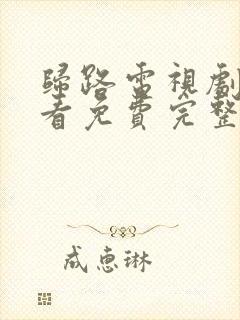 歸路電視劇
看免費完整
成惠琳